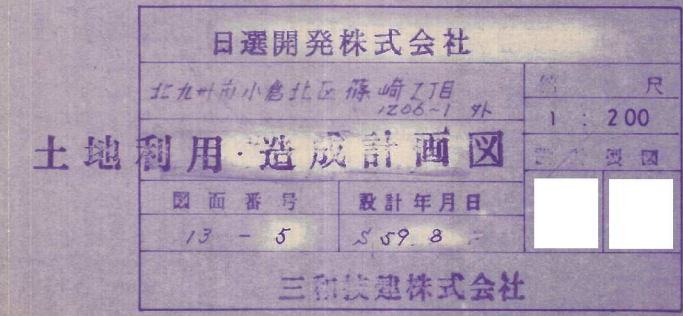 日選開発株式会社
北九州市小倉北区篠崎2丁目
1206~1 外
縮尺
1:200
土地利用・造成計画図
設計 製図
図面番号
設計年月日
13-5
S59.8
三和技建株式会社